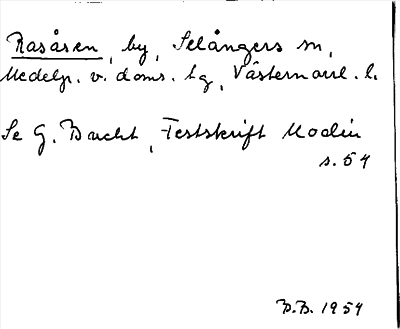 Rasåsen, by, Selångers sn,
Medelp. v. doms. tg, Västernorrl. l.
Se G. Bucht, Festskrift Modin
s. 54
B.B. 1954